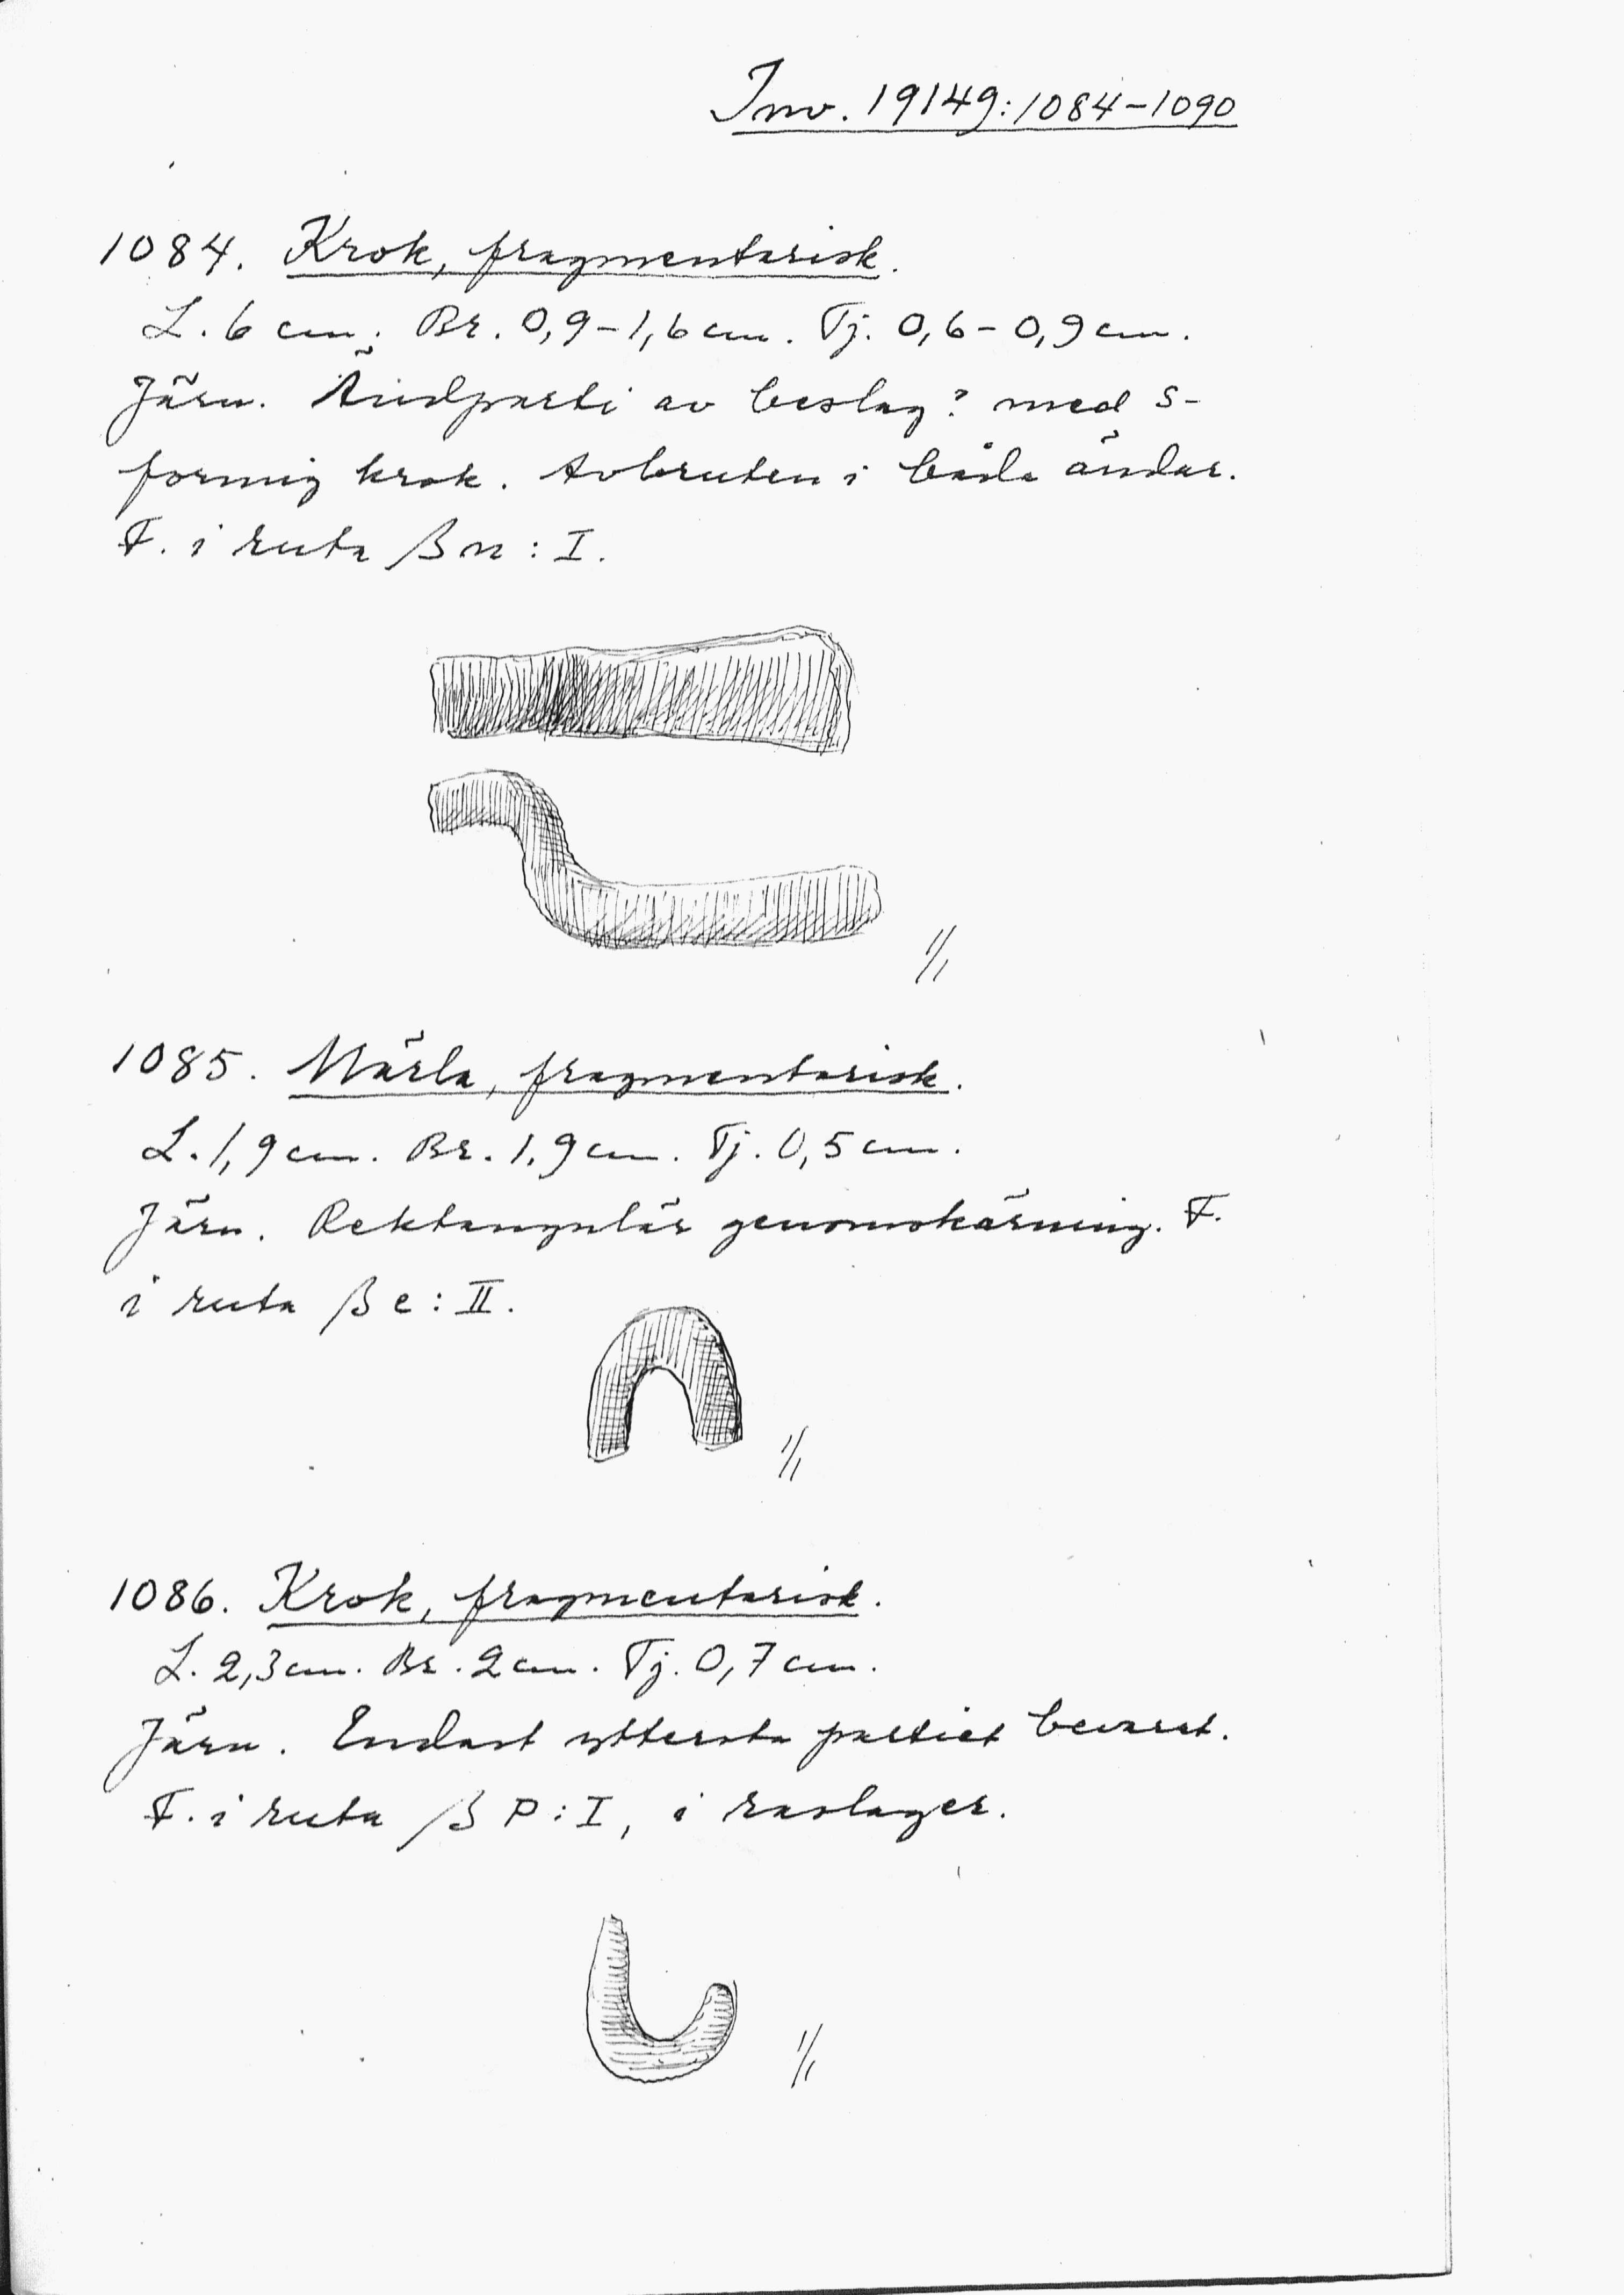 Inv. 19149:1084-1090
1084. Krok, fragmentarisk.
L. 6 cm. Br. 0,9-1,6 cm. Tj. 0,6-0,9 cm.
Järn. Ändparti av beslag? med s-
formig krok. Avbruten i båda ändar.
F. i ruta βn:I.
1/1
1085. Märla, fragmentarisk.
L. 1,9 cm. Br. 1,9 cm. Tj. 0,5 cm.
Järn. Rektangulär genomskärning. F.
i ruta βe:II.
1/1
1086. Krok, fragmentarisk.
L. 2,3 cm. Br. 2 cm. Tj. 0,7 cm.
Järn. Endast yttersta partiet bevarat.
F. i ruta βP:I, i raslager.
1/1